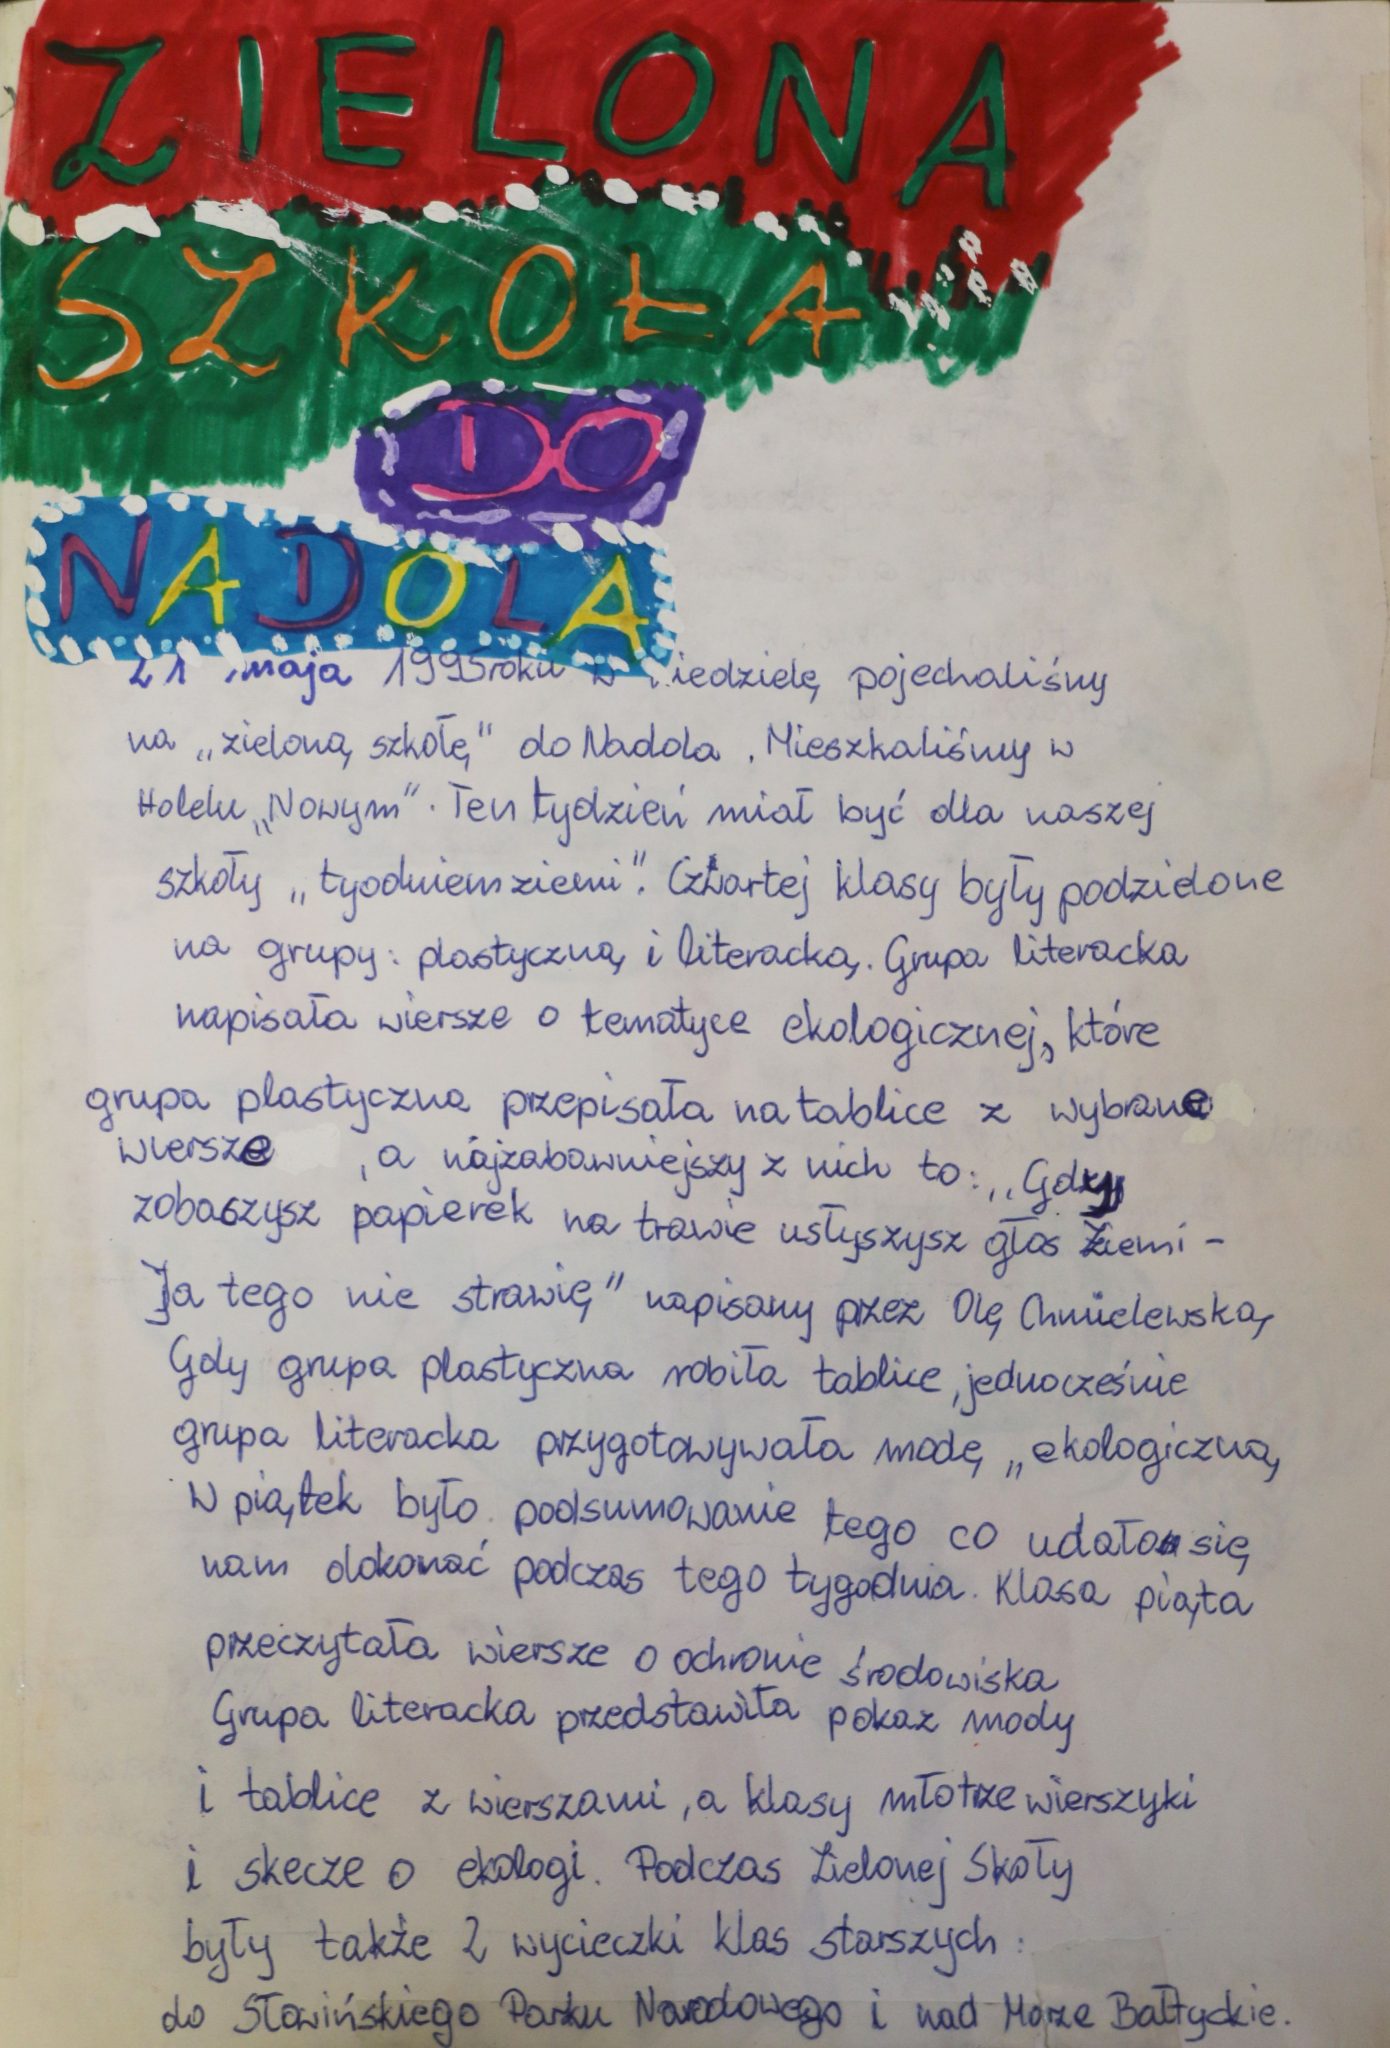 ZIELONA
SZKOŁA
DO
NADOLA
21 maja 1995 roku w niedzielę pojechaliśmy
na „zieloną szkołę" do Nadola. Mieszkaliśmy w
Holelu „Nowym". Ten tydzień miał być dla naszej
szkoły „tyodniem ziemi". Czwartej klasy były podzielone
na grupy: plastyczną i literacką. Grupa literacka
napisała wiersze o tematyce ekologicznej, które
grupa plastyczna przepisała na tablice z wybrane
wiersze , a najzabawniejszy z nich to: „Gdy
zobaszysz papierek na trawie usłyszysz głos Ziemi -
Ja tego nie strawię" napisany przez Olę Chmielewską,
Gdy grupa plastyczna robiła tablice, jednocześnie
grupa literacka przygotowywała modę „ekologiczną,
W piątek było podsumowanie tego co udało się
nam dokonać podczas tego tygodnia. Klasa piąta
przeczytała wiersze o ochronie środowiska
Grupa literacka przedstawiła pokaz mody
i tablice z wierszami, a klasy młotrze wierszyki
i skecze o ekologi. Podczas Zielonej Skoły
były także 2 wycieczki klas starszych:
do Słowińskiego Parku Narodowego i nad Morze Bałtyckie.